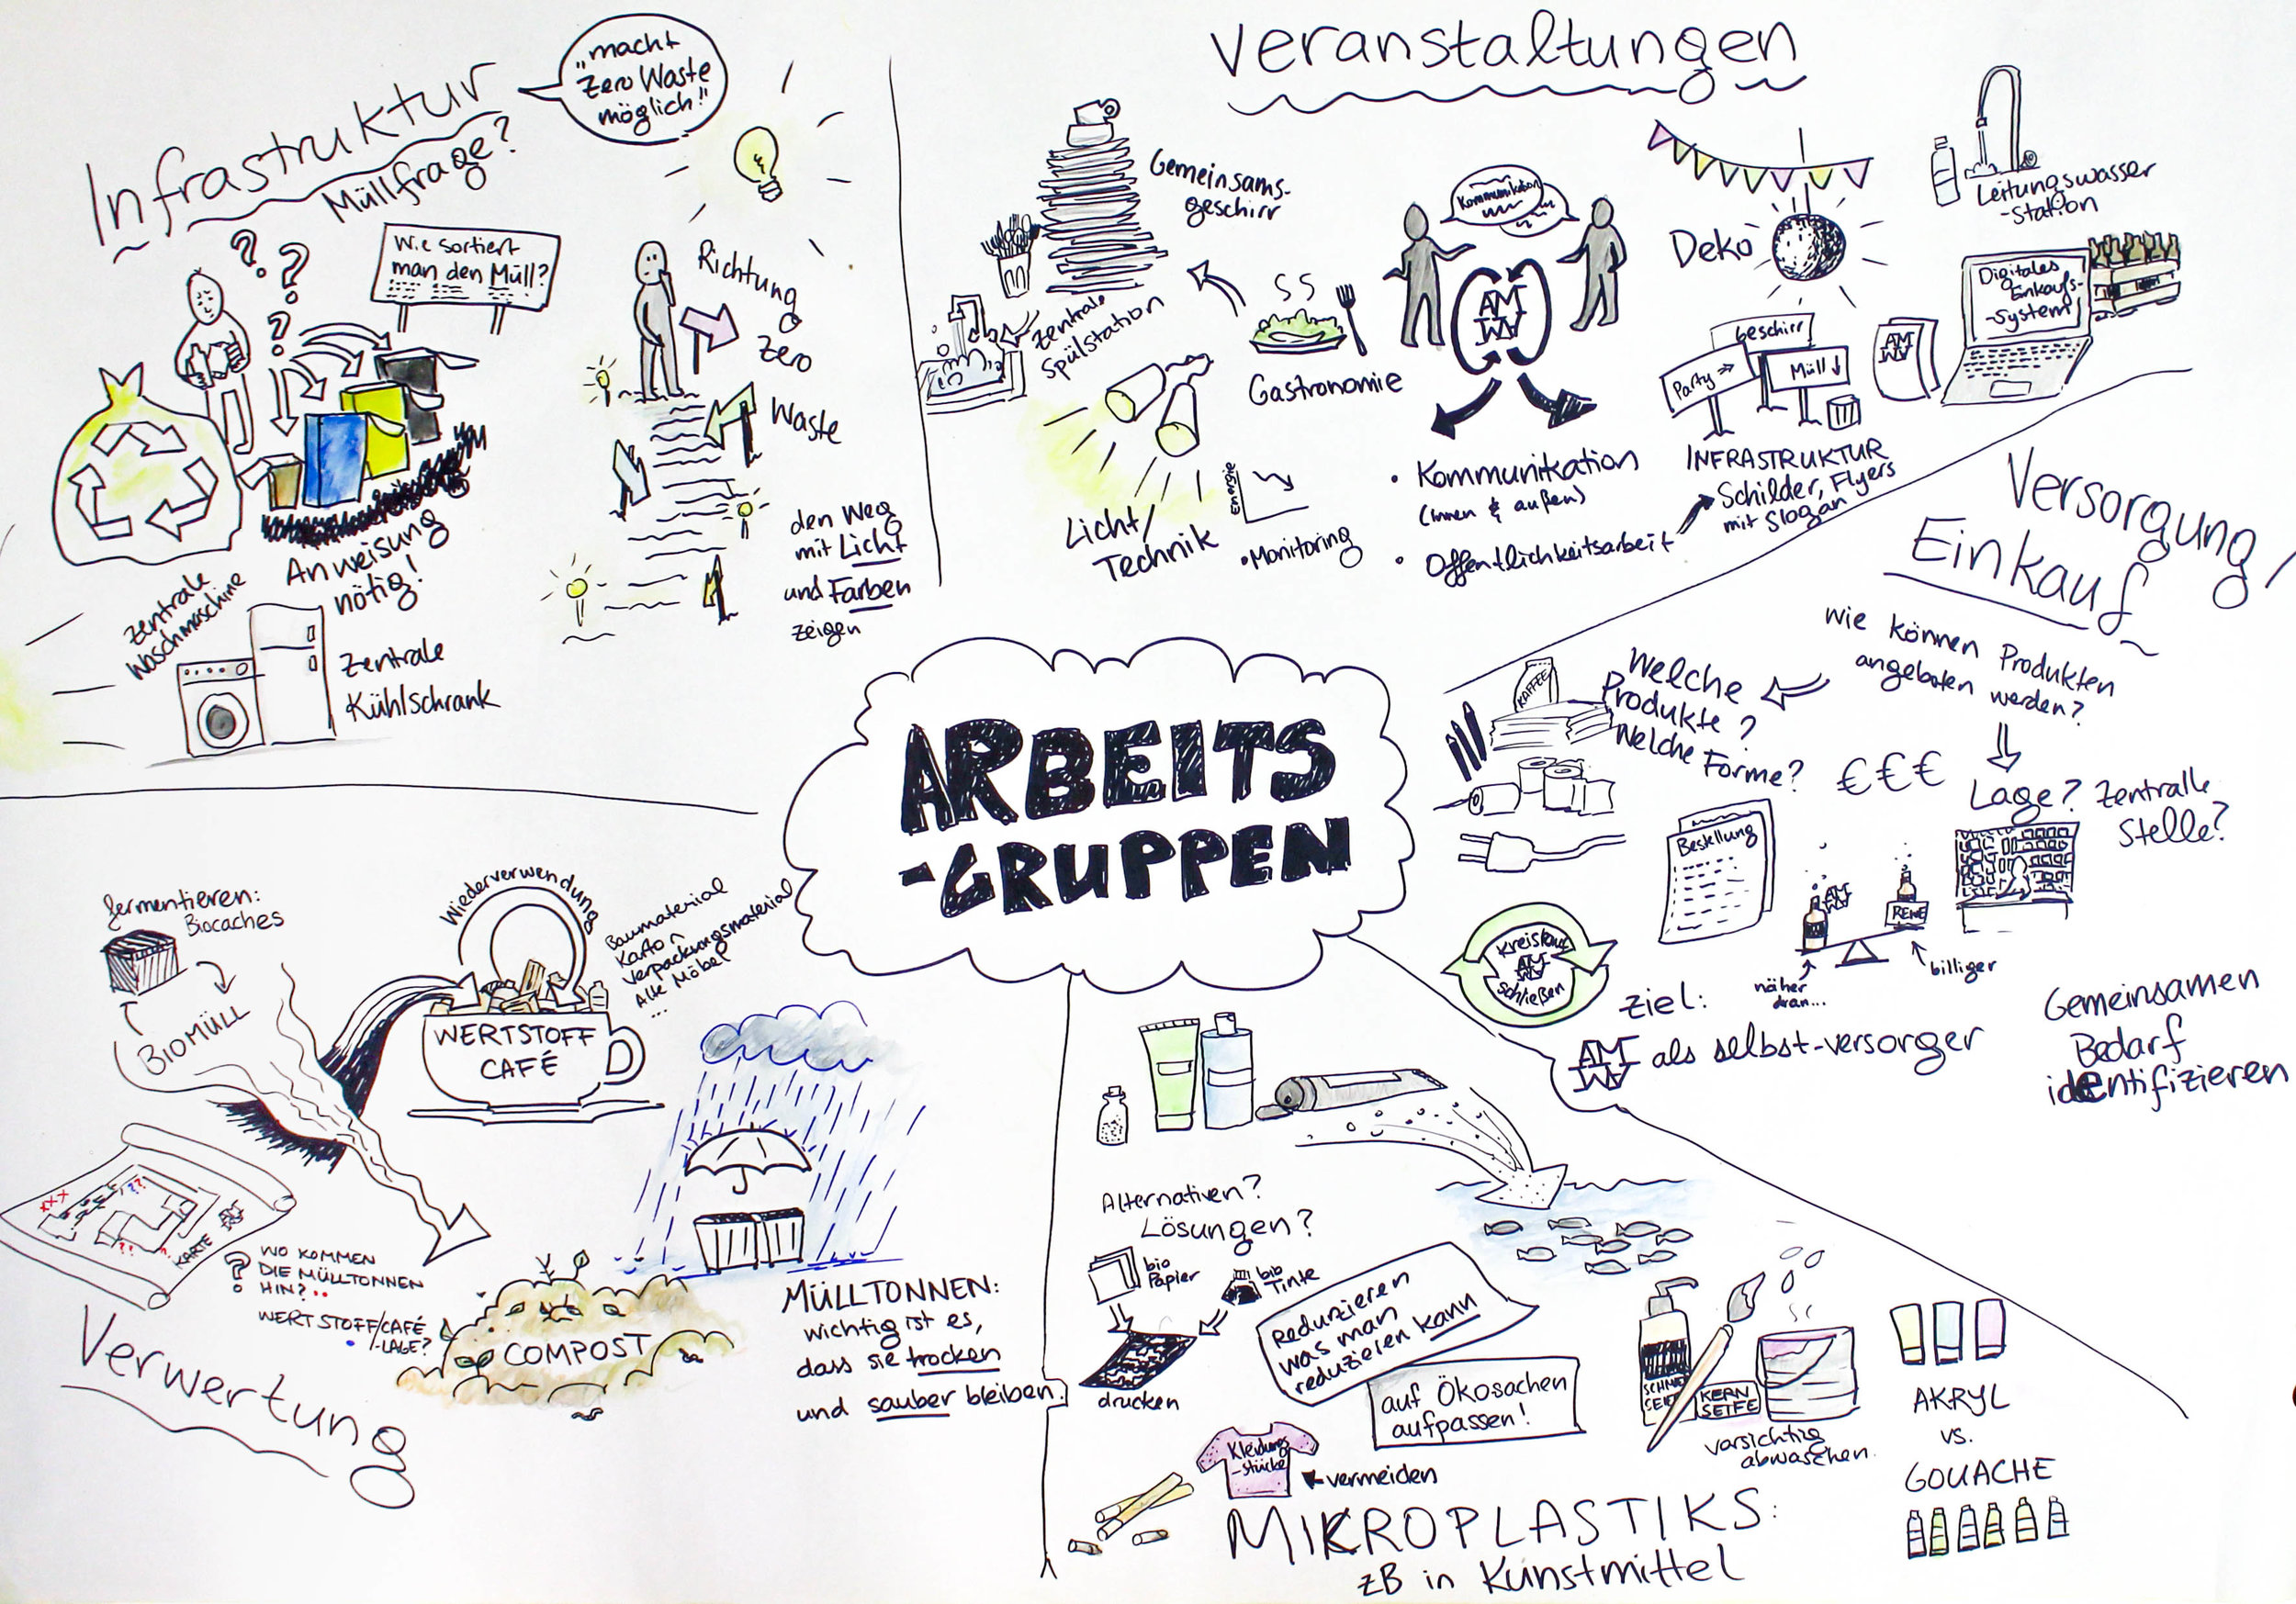 Infrastruktur
"macht
Zero Waste
möglich!"
Müllfrage?
Wie sortiert
man den Müll?
Anweisung
nötig!
Zentrale
Waschmaschine
Zentrale
Kühlschrank
Richtung
Zero
Waste
den Weg
mit Licht
und Farben
zeigen
Veranstaltungen
Gemeinsams-
geschirr
Zentrale
Spülstation
Gastronomie
Kommunikation
AMT
Licht/
Technik
Energie
• Monitoring
• Kommunikation
(innen & außen)
• Öffentlichkeitsarbeit
Deko
Leitungswasser
-station
Digitales
Einkaufs-
-system
Party
Geschirr
Müll
INFRASTRUKTUR
Schilder, Flyers
mit Slogan
Versorgung/
Einkauf
Wie können Produkten
angeboten werden?
Welche
Produkte?
Welche Forme?
KAFFEE
€€€
Lage? Zentralle
Stelle?
Bestellung
REWE
näher
dran...
billiger
Kreislauf
schließen
Ziel:
als selbst-versorger
Gemeinsamen
Bedarf
identifizieren
ARBEITS
-GRUPPEN
fermentieren:
Biocaches
BIOMÜLL
Wiederverwendung
Baumaterial
Karton
Verpackungsmaterial
Alte Möbel
...
WERTSTOFF
CAFÉ
KARTE
? WO KOMMEN
DIE MÜLLTONNEN
HIN?
WERTSTOFF/CAFÉ
-LAGE?
COMPOST
MÜLLTONNEN:
wichtig ist es,
dass sie trocken
und sauber bleiben.
Verwertung
Alternativen?
Lösungen?
bio
Papier
bio
Tinte
drucken
Redunzieren
was man
reduzieren kann
auf Ökosachen
aufpassen!
Kleidungs
-stücke
vermeiden
KERN
SEIFE
vorsichtig
abwaschen.
AKRYL
vs.
GOUACHE
MIKROPLASTIKS:
zB in Kunstmittel